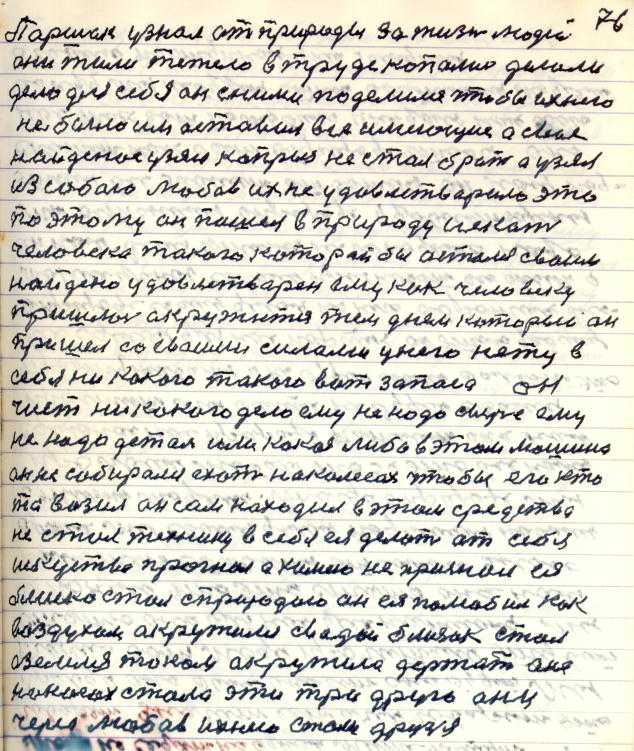 76
Паршак узнал от природы за жизнь людей
они жили тежело в труде копалис делали
дело для себя он с ними поделился чтобы ихнего
не было им оставил все имеющие а свое
найденое узял не стал брат а узял
из собаю любов их не удовлетварело это
по этому он пашел в природу искат
человека такого которай бы астался своим
найдено удовлетварен ему как человеку
пришлос акружится тем днем который он
пришел со сваими силами у него нету в
себя ни какого такого вот запаса он
чист никакого дела ему не надо ему
не надо детал или какая либо в этом машина
он не собирался ехать на колесах чтобы его кто
та возил он сам находил в этом средства
не стал технику в себя ея делать ат себя
искуства прогнал а химию не признал ея
близко стал с природаю он ея полюбил как
воздухам акружился вадой близок стал
землия током акружила держат ана
на нагах стала эти три друга ани
через любов ихнюю стали друзя